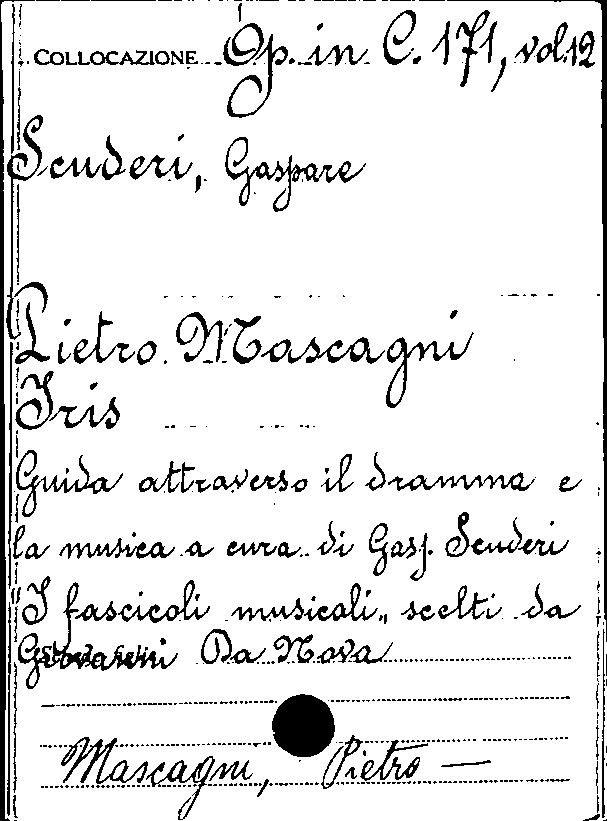 COLLOCAZIONE Op. in C. 171, vol. 12
Scuderi, Gaspare
Pietro Mascagni
Iris
Guida attraverso il dramma e
la musica a cura di Gasp. Scuderi
"I fascicoli musicali„ scelti da
Giovanni Da Nova
Mascagni, Pietro —